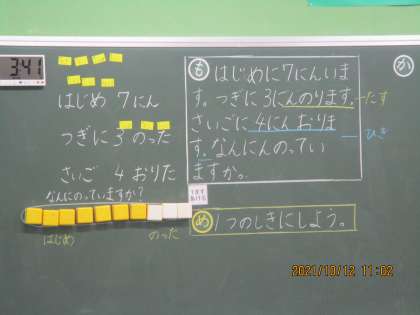 3:41
はじめ 7にん
つぎに 3 のった
さいご 4 おりた
なんにのっていますか?
はじめ
のった
も はじめに7にんいま
す。つぎに3にんのります。
さいごに4にんおりま
す。なんにんのってい
ますか。
たす
ひき
め 1つのしきにしよう。
か
2021/10/12 11:02